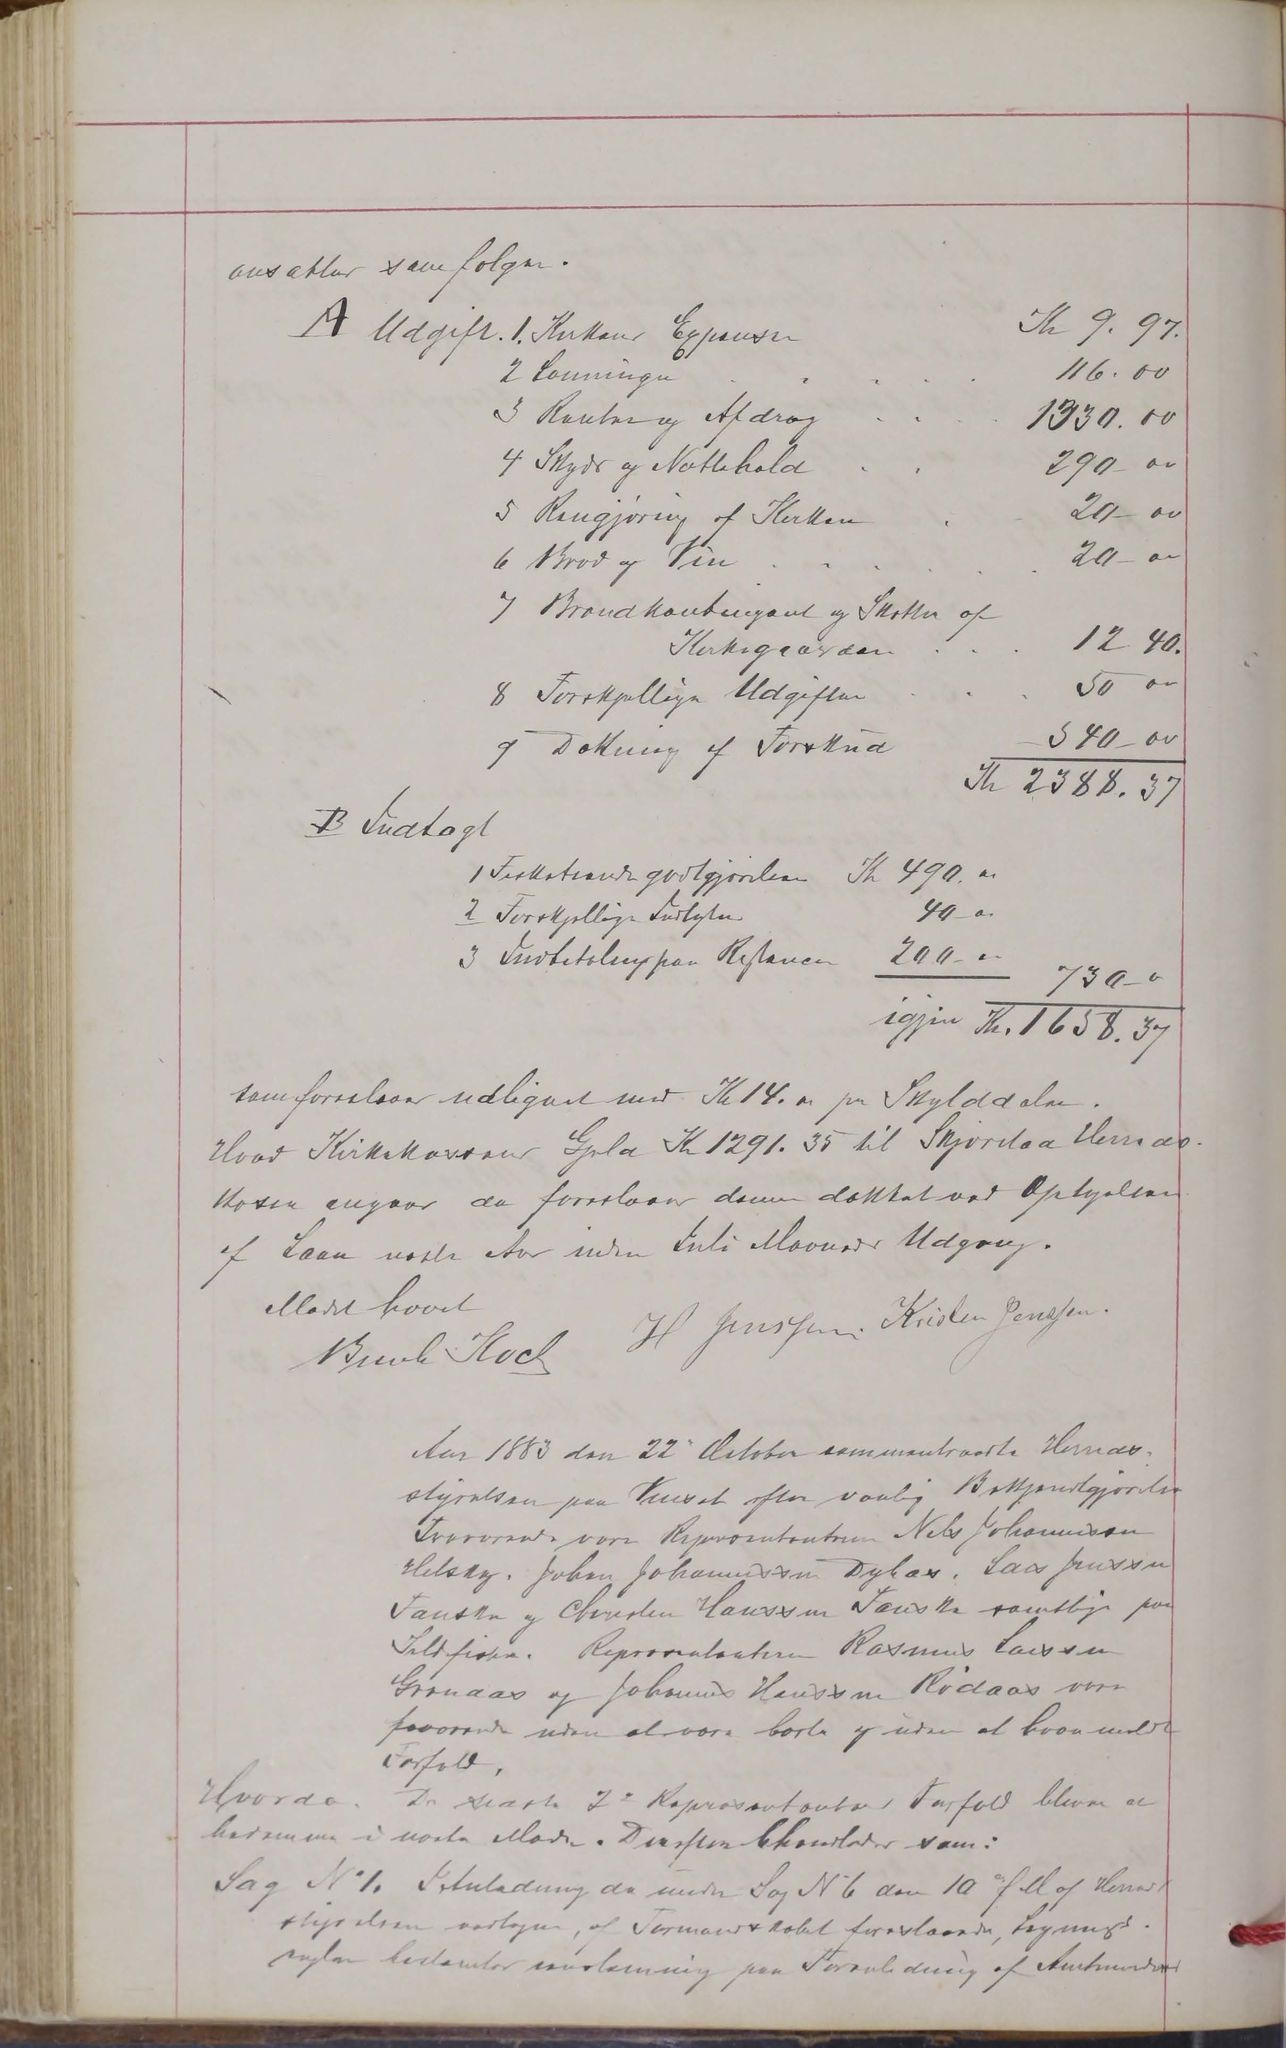 ansættes som følger.
A Udgift. 1. Kirkens Expenser Kr 9. 97.
2 Lønninger 116. 00
3 Renter og Afdrag 1330. 00
4 Skyds og Nattehold 290 – 00
5 Rengjøring af Kirken 20 – 00
6 Brød og Vin 20 – 00
7 Brandkontingent og Skatter af
Kirkegaarden 12 40.
8 Forskjellige Udgifter 50 00
9 Dækning af Forskud 540 – 00
Kr 2388. 37
B Indtægt
1 godtgjørelsen Kr 490. 00
2 Forskjellige Indtægter 40 – 00
3 Indbetaling paa Restancer 200 – 00
730 – 0
igjen Kr. 1658. 37
som foreslaaes udlignet med Kr 14. 00 pr Skylddaler.
Hvad Kirkekassens Gjæld Kr 1291. 35 til Skjerstad Herreds-
kasse angaar da foreslaaes denne dækket ved Optagelsen
af Laan næste Aar inden Juli Maaneds Udgang.
Mødet hævet
Koch H Jenssen. Kristen Jenssen.
Aar 1883 den 22de October sammentraadte Herreds-
styrelsen paa Venset efter vanlig Bekjendtgjørelse
Fraværende vare Repræsentanterne Nels Johannessen
Johan Johannessen Lars Jenssen
og Christen Hanssen samtlige paa
Sildfiske. Repræsentanterne Rasmus Larssen
Grønaas og Johannes Hanssen Rødaas vare
fraværende uden at være borte og uden at have meldt
Forfald.
De sidste 2de Repræsentanters Forfald bliver at
bedømme i næste Møde. Derefter behandledes som:
Sag No 1. I Anledning da under Sag No 6 den 10de f. M af Herreds
styrelsen vedtagne, af Formandskabet foreslaaede,
regler bestemtes paa Foranledning af Amtmanden